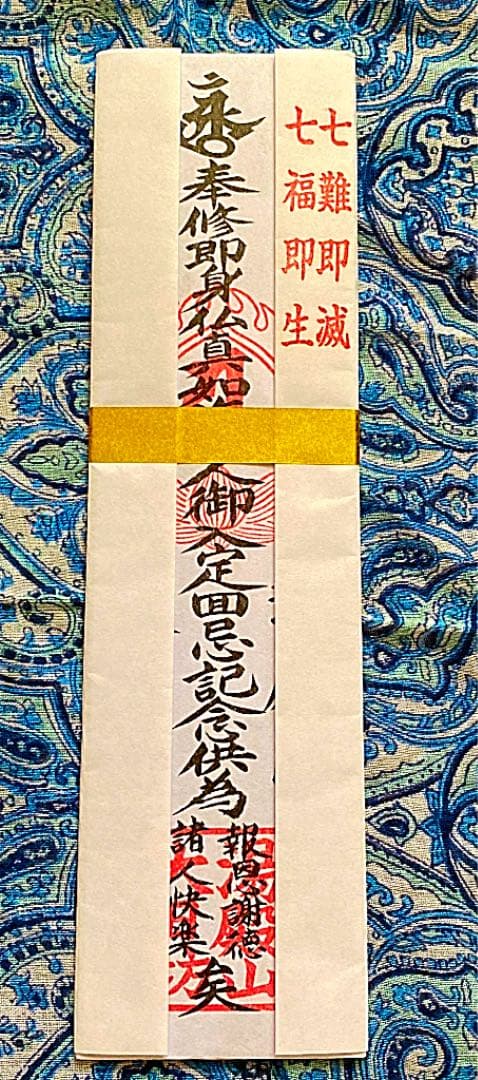 七難即滅
七福即生
奉修即身仏真如 人御入定回忌記念供為
報恩謝徳
諸人快楽
矣
湯殿山